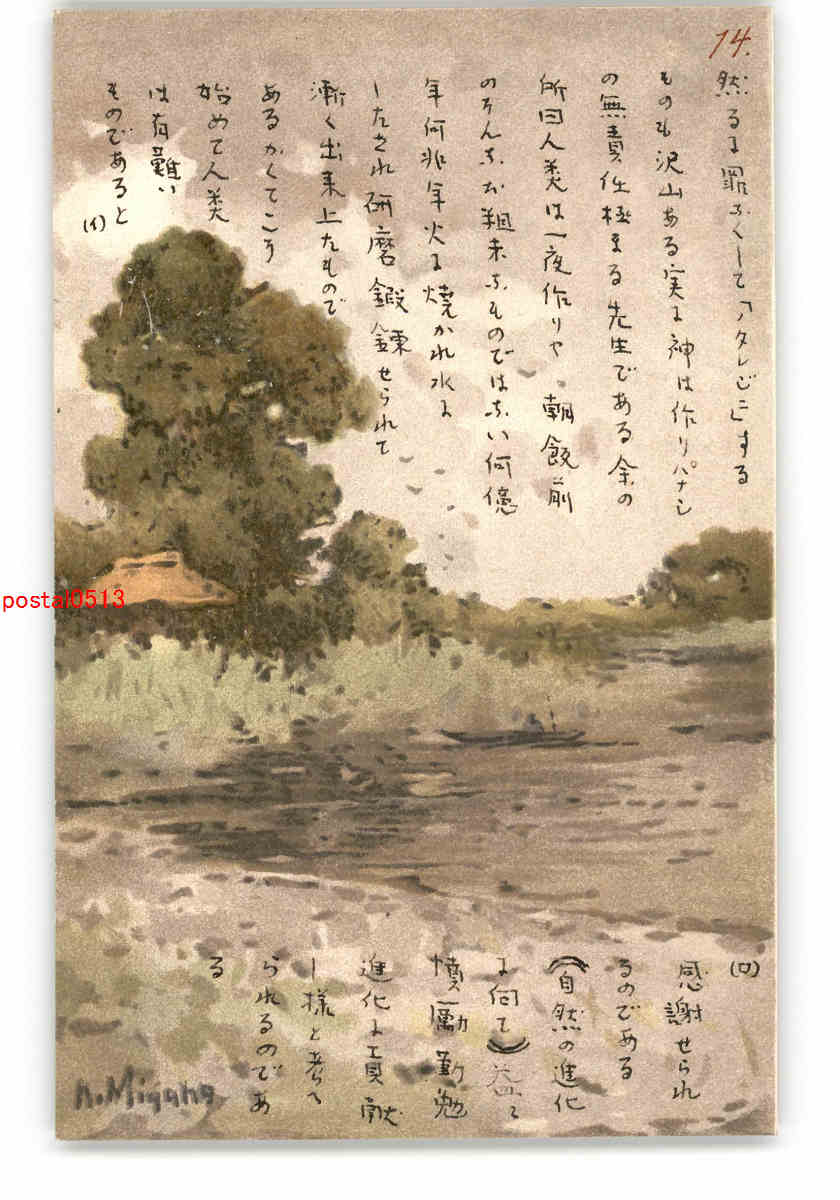 14.
然るに罪なくして「アタレビニ」する
ものも沢山ある実に神は作りパナシ
の無責任極まる先生である余の
所曰人類は一夜作りや朝飯前
のそんなお粗末なものではない何億
年何兆年火に焼かれ水に
したされ研磨鍛錬せられて
漸く出来上たもので
あるかくてこう
始めて人类
は有難い
ものであると
(イ)
(ロ)
感謝せられ
るのである
(自然の進化
に何て)益々
憤励勤勉
進化に貢献
し様と考へ
られるのであ
る
n. Miyano
postal0513